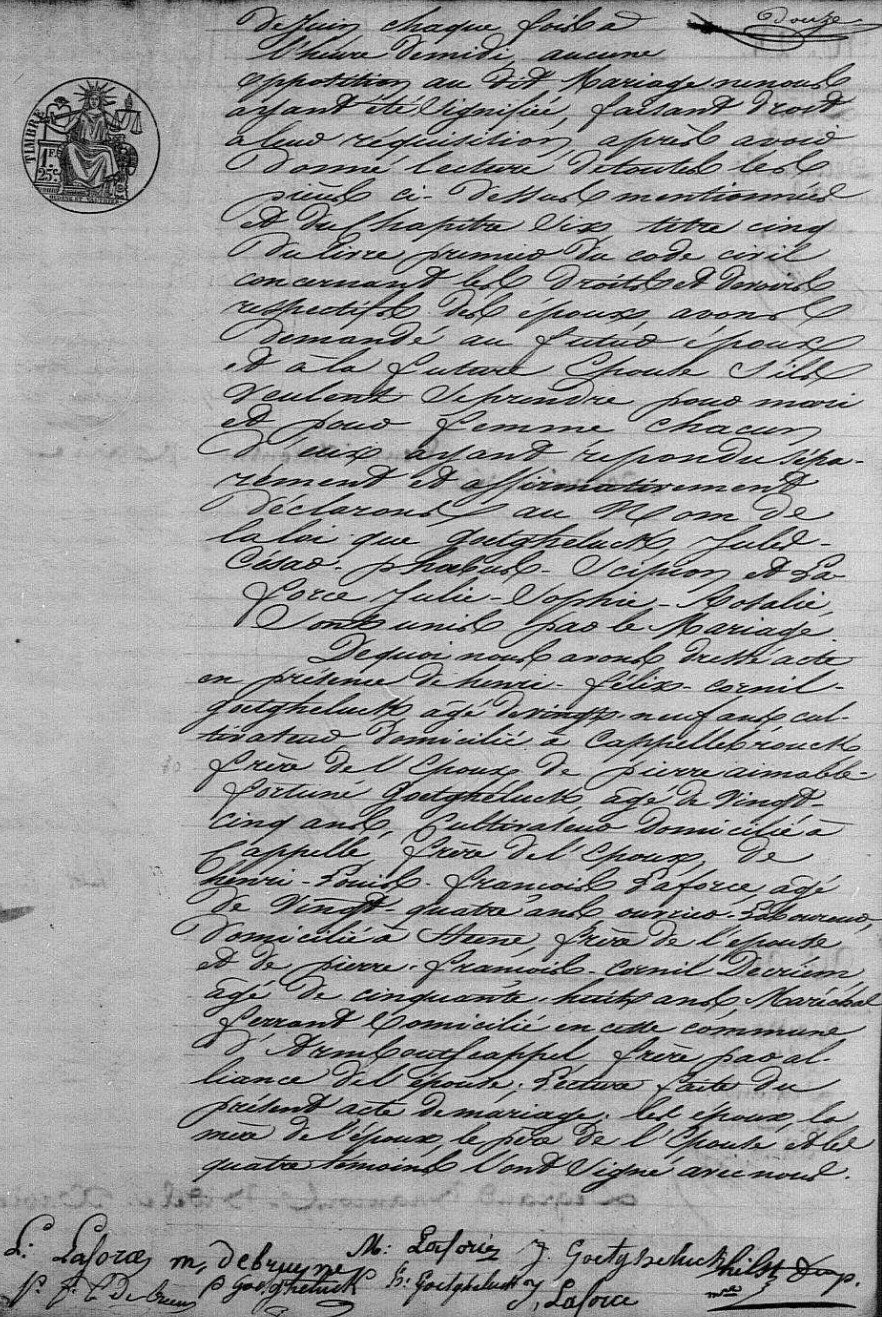 douze
de Juin chaque fois à
l'heure de midi, aucune
oppotition au dit Mariage ne nous
ayant été Signifiée, faisant droit
à leur réquisition, après avoir
donné lecture de toutes les
pièces ci-dessus mentionnées
et du Chapitre Six titre cinq
du livre premier du code civil
concernant les droits et devoirs
respectifs des époux, avons
demandé au futur époux
et à la future Epouse S'ils
veulent Se prendre pour mari
et pour femme chacun
d'eux ayant répondu sépa-
rément et affirmativement
déclarons au Nom de
la loi que Goetgheluck, Jules-
César-phoebus-Scipion et La-
force Julie-Sophie-Rosalie,
Sont unis par le Mariage.
De quoi nous avons dressé acte
en présence de henri-félix-cornil-
goetgheluck âgé de vingt-neuf ans cul-
tivateur domicilié à Cappellebrouck
frère de l'Epoux, de pierre aimable-
fortuné Goetgheluck âgé de Vingt-
cinq ans, Cultivateur domicilié à
Cappelle, frère de l'Epoux, de
henri-Louis-françois Laforce, âgé
de Vingt-quatre ans ouvrier-Laboureur,
domicilié à Steene, frère de l'épouse
et de pierre-françois-cornil Decriem
âgé de cinquante-huit ans, Maréchal
ferrant domicilié en cette commune
d'Armboutscappel frère par al-
liance de l'épouse; Lecture faite du
présent acte de mariage, les époux, la
mère de l'époux, le père de l'Epouse et les
quatre témoins l'ont Signé avec nous.
L: Laforce m, debruyne M: Laforce J. Goetgheluck
P. f. C Decriem P Goetgheluck H: Goetgheluck J, Laforce
TIMBRE
1 FR
25 C